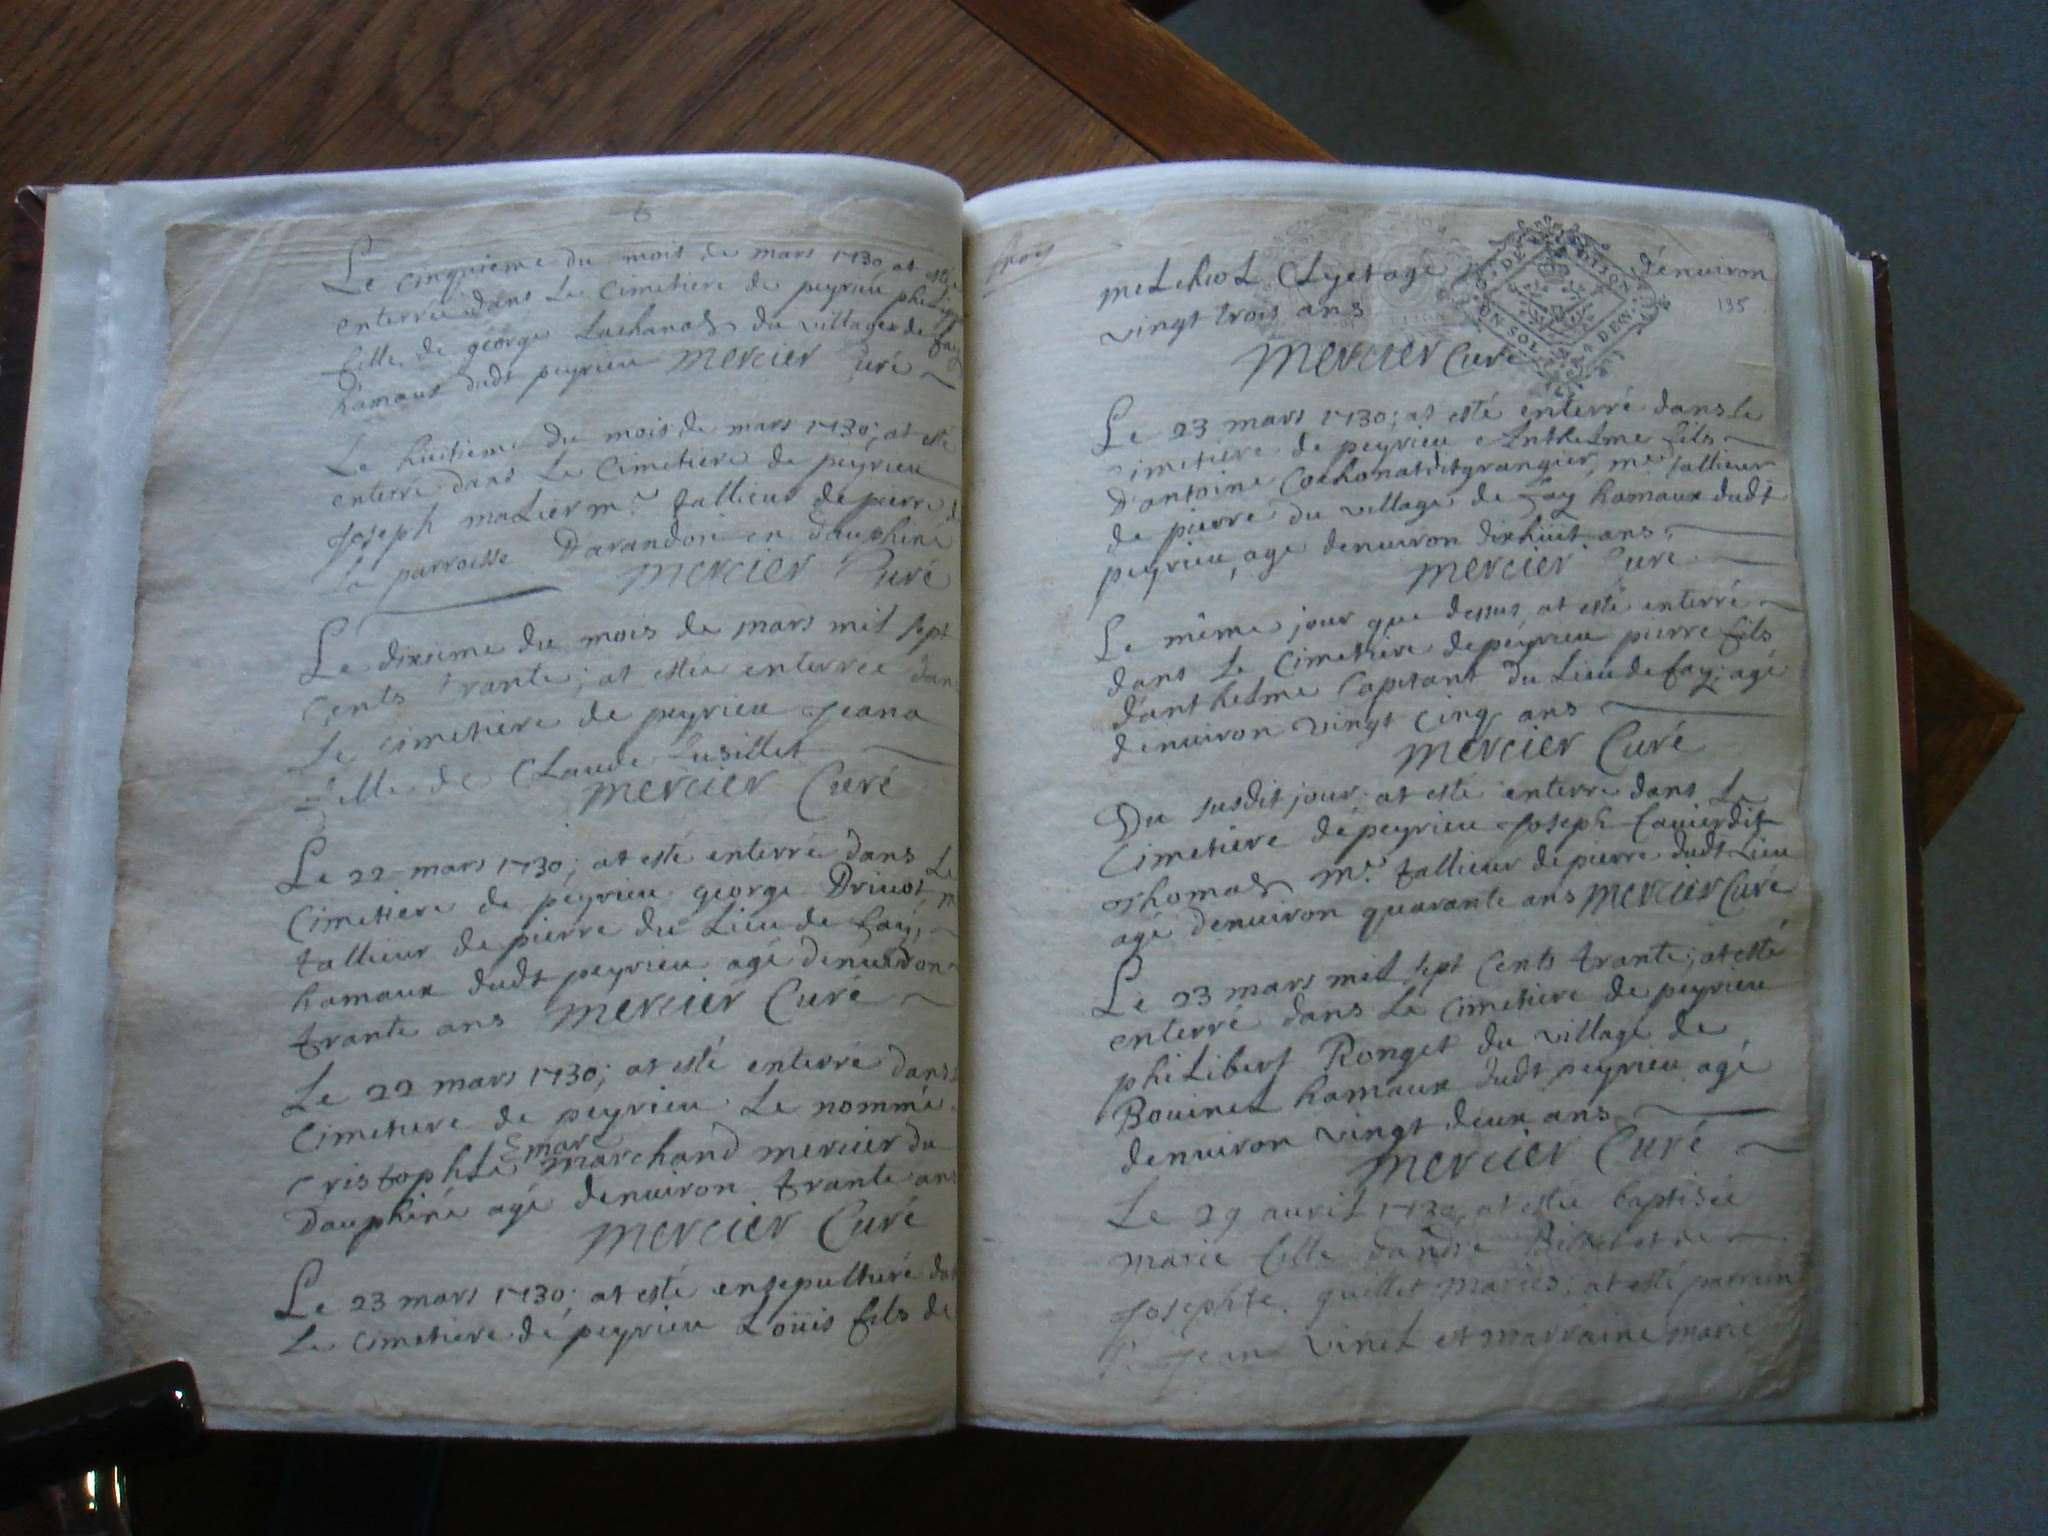 6
Le cinquieme du mois de mars 1730 at estée
enterrée dans Le Cimetiere de peyrieu
fille de george Lachanas du village de fay
hamaux dudt peyrieu mercier Curé
Le huitieme du mois de mars 1730; at esté
enterré dans Le Cimetiere de peyrieu
Joseph maLier mr. tallieur de pierre de
La parroisse Darandon en dauphiné
mercier Curé
Le dixieme du mois de mars mil sept
Cents trante; at estée enterrée dans
Le Cimetiere de peyrieu Jeana
fille de CLaude Lusillet
mercier Curé
Le 22 mars 1730; at esté enterré dans Le
Cimetiere de peyrieu george Driuot, m
tallieur de pierre du Lieu de fay,
hamaux dudt peyrieu agé denuiron
trante ans mercier Curé
Le 22 mars 1730; at esté enterré dans
Cimetiere de peyrieu Le nommé
Cristophle Emare marchand mercier du
Dauphiné agé denuiron trante ans
mercier Curé
Le 23 mars 1730; at esté ensepulturé dans
Le Cimetiere de peyrieu Loüis fils de
trois
meLchioL CLyet agé denuiron
135
vingt trois ans
mercier Curé
Le 23 mars 1730; at esté enterré dans le
Cimetiere de peyrieu AnthеLme fils
D'antoine Cochonat dit grangier, me tallieur
de pierre du village de Fay hamaux dudt
peyrieu, agé denuiron dixhüit ans
mercier Curé
Le même jour que dessus, at esté enterré
dans Le Cimetiere de peyrieu pierre fils
d'antheLme Capitant du Lieu de fay; agé
denuiron vingt Cinq ans
mercier Curé
Du susdit jour; at esté enterré dans Le
Cimetiere de peyrieu Joseph fauier dit
Thomas mr. tallieur de pierre dudt Lieu
agé denuiron quarante ans mercier Curé
Le 23 mars mil sept Cents trante; at esté
enterré dans Le Cimetiere de peyrieu
phiLibert Ronget du village de
BouineL hamaux dudt peyrieu agé
denuiron vingt deux ans
mercier Curé
Le 29 auril 1730 at estée baptisée
marie fille dandré et de
Josephte guillet mariés; at esté parrain
Sr. Jean VineL et marraine marie